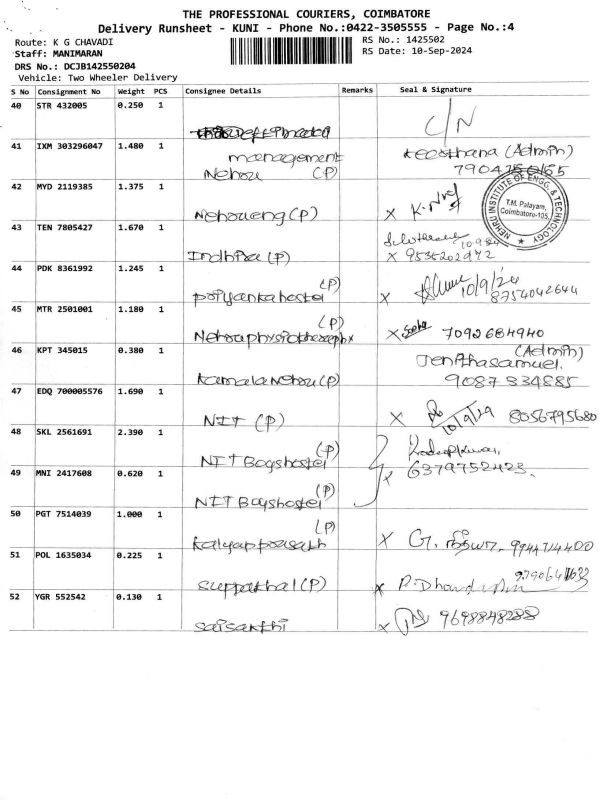 THE PROFESSIONAL COURIERS, COIMBATORE
Delivery Runsheet - KUNI - Phone No.:0422-3505555 - Page No.:4
Route: K G CHAVADI
RS No.: 1425502
Staff: MANIMARAN
RS Date: 10-Sep-2024
DRS No.: DCJB142550204
Vehicle: Two Wheeler Delivery
S No Consignment No Weight PCS Consignee Details Remarks Seal & Signature
40 STR 432005 0.250 1
C/N
41 IXM 303296047 1.480 1 management (Admin)
Nehru (P)
42 MYD 2119385 1.375 1 Nehrueng (P) x
NEHRU INSTITUTE OF ENGG. & TECHNOLOGY
T.M. Palayam,
Coimbatore-105.
43 TEN 7805427 1.670 1 Indhira (P) x 9535202972
44 PDK 8361992 1.245 1 (P)
Poriyankahostel x 10/9/24
8754042644
45 MTR 2501001 1.180 1 (P)
Nehruphysiotheraph x 7092684940
46 KPT 345015 0.380 1 (Admin)
Jenithasamuel.
Kamala Nehru (P) 9087 834885
47 EDQ 700005576 1.690 1 NIT (P) x 10/9/24 8056795680
48 SKL 2561691 2.390 1 (P)
NIT Boyshostel
49 MNI 2417608 0.620 1 x 6379752423.
(P)
NIT Boyshostel
50 PGT 7514039 1.000 1 (P)
Kalyanprasath x G. 9944714400
51 POL 1635034 0.225 1 Suppathal (P) x P.
52 YGR 552542 0.130 1 Saisakthi x 9698848288